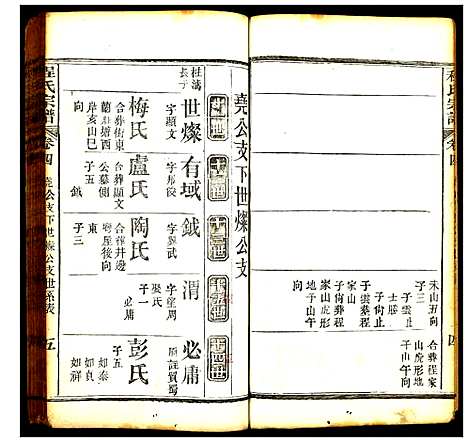 未山丑向
子三
士勝
子尙止
子雲葬程
子尙葬程
家山
家山虎形
地子山午
合葬程家
山虎形
子山午
向
程氏宗譜
卷四
四
堯公支下世燦公支
十世
十一世
十二世
十三世
十四世
世燦
字顯文
梅氏
合葬街東
蘭山塘西
岸亥山巳
向
有域
盧氏
合葬顯文
公墓側
子五
鉞
鉞
陶氏
合葬井邊
粵屋後向
東
子三
渭
字望周
娶氏
子一
必庸
必庸
彭氏
子五
如泰
如貞
如祥
程氏宗譜
卷四
堯公支下世燦公支世系表
五